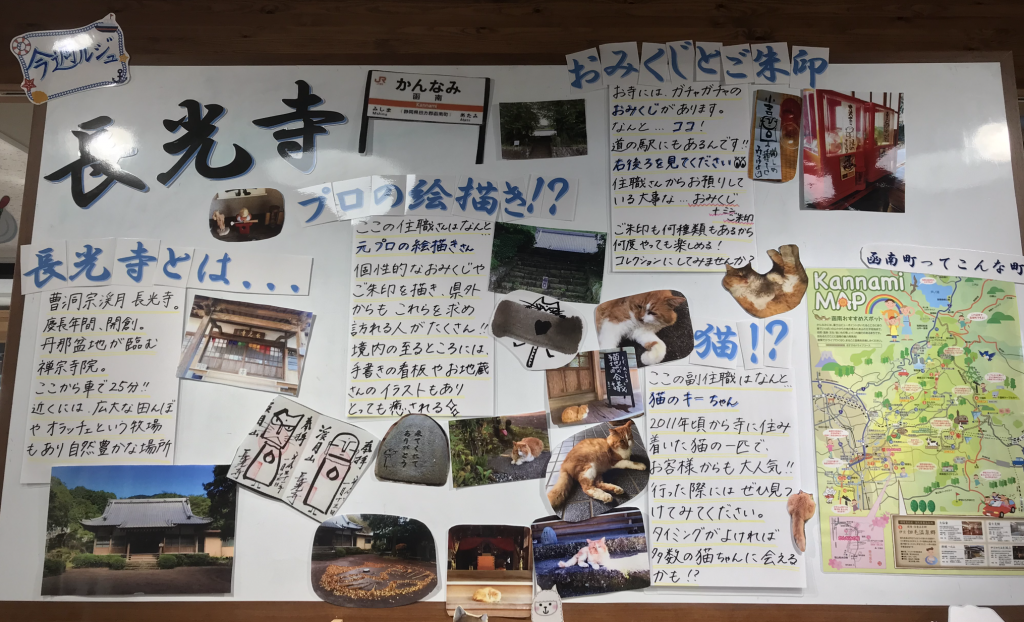 今週ルジュ
長光寺
かんなみ
函南
Kannami
みしま
Mishima
あたみ
Atami
おみくじとご朱印
お寺には、ガチャガチャの
おみくじがあります。
なんと…ココ!
道の駅にもあるんです!!
右後ろを見てください
住職さんからお預りして
いる大事な…おみくじ
+ミニご朱印
ご朱印も何種類もあるから
何度やっても楽しめる!
コレクションにしてみませんか?
プロの絵描き!?
ここの住職さんはなんと…
元プロの絵描きさん
個性的なおみくじや
ご朱印を描き、県外
からもこれらを求め
訪れる人がたくさん!!
境内の至るところには、
手書きの看板やお地蔵
さんのイラストもあり
とっても癒される
長光寺とは...
曹洞宗渓月長光寺。
慶長年間、開創。
丹那盆地が臨む
禅宗寺院。
ここから車で25分!!
近くには、広大な田んぼ
やオラッチェという牧場
もあり自然豊かな場所
猫!?
ここの副住職はなんと…
猫のキーちゃん
2011年頃から寺に住み
着いた猫の一匹で、
お客様からも大人気!!
行った際にはぜひ見つ
けてみてください。
タイミングがよければ
多数の猫ちゃんに会える
かも!?
来てくれて
ありがとう
函南町ってこんな町
Kannami
MAP
函南おすすめスポット